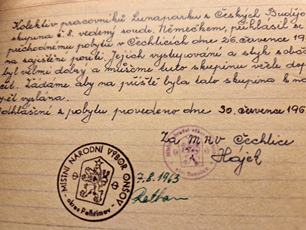 Kolektiv pracovníků Lunaparku z Českých Buděj
skupina č. 8. vedený soudr. Němečkem, přihlásil se
přechodnému pobytu v Čechticích dne 26. července 19
na zajištění poutě. Jejich vystupování a styk s obča
byl velmi dobrý a můžeme tuto skupinu vřele dop
čit. Žádáme aby na příště byla tato skupina k n
vyslána.
Odhlášení z pobytu provedeno dne 30. července 196
Za MNV Čechtice
Hájek
MÍSTNÍ NÁRODNÍ VÝBOR ONŠOV
okres Pelhřimov
7.8.1963